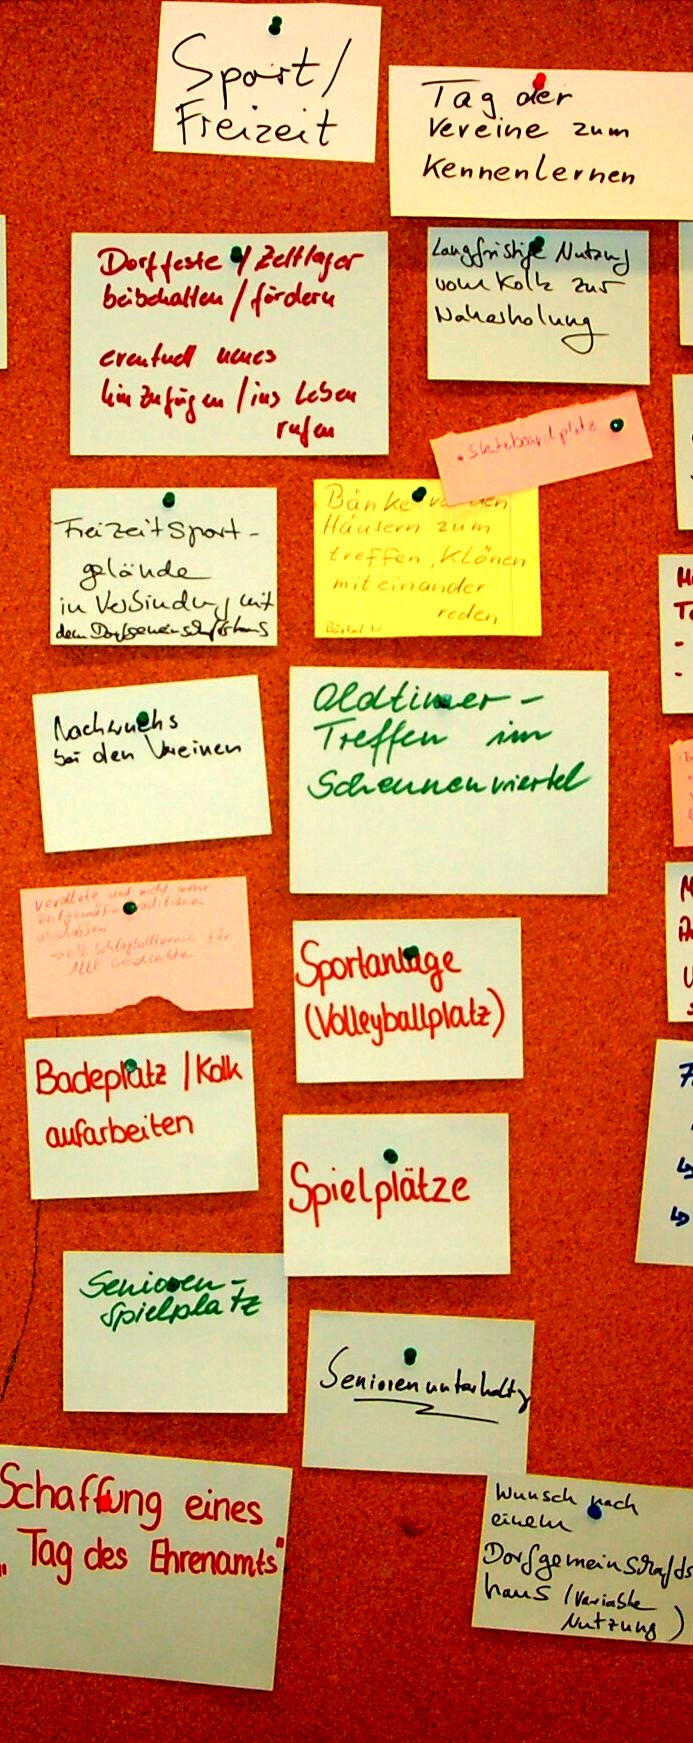 Sport/
Freizeit
Tag der
Vereine zum
Kennenlernen
Dorffeste / Zeltlager
beibehalten / fördern
eventuell neues
hinzufügen / ins Leben
rufen
Langfristige Nutzung
vom Kolk zur
Naherholung
. Skateboardplatz
Freizeitsport-
gelände
in Verbindung mit
dem Dorfgemeinschaftshaus
Bänke vor den
Häusern zum
treffen, Klönen
miteinander
reden
Nachwuchs
bei den Vereinen
Oldtimer-
Treffen im
Scheunenviertel
veraltete und nicht mehr
zeitgemäße Traditionen
abschaffen
→ z.B. Schlagballverein für
ALLE Geschlechter
Sportanlage
(Volleyballplatz)
Badeplatz / Kolk
aufarbeiten
Spielplätze
Senioren-
spielplatz
Seniorenunterhaltg
Schaffung eines
„Tag des Ehrenamts"
Wunsch nach
einem
Dorfgemeinschafts
haus (variable
Nutzung)